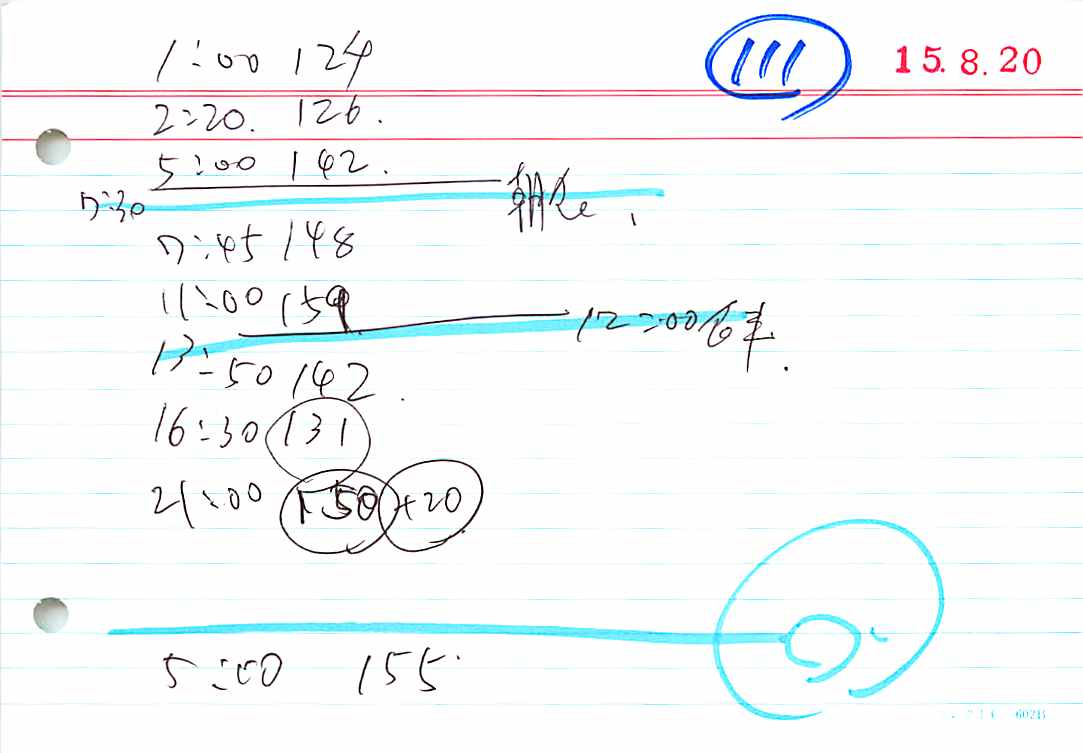 111 15.8.20
1:00 124
2:20. 126.
5:00 142.
7:30 朝食、
7:45 148
11:00 159
12:00
13:50 142.
16:30 131
21:00 150 +20
5:00 155.
602B